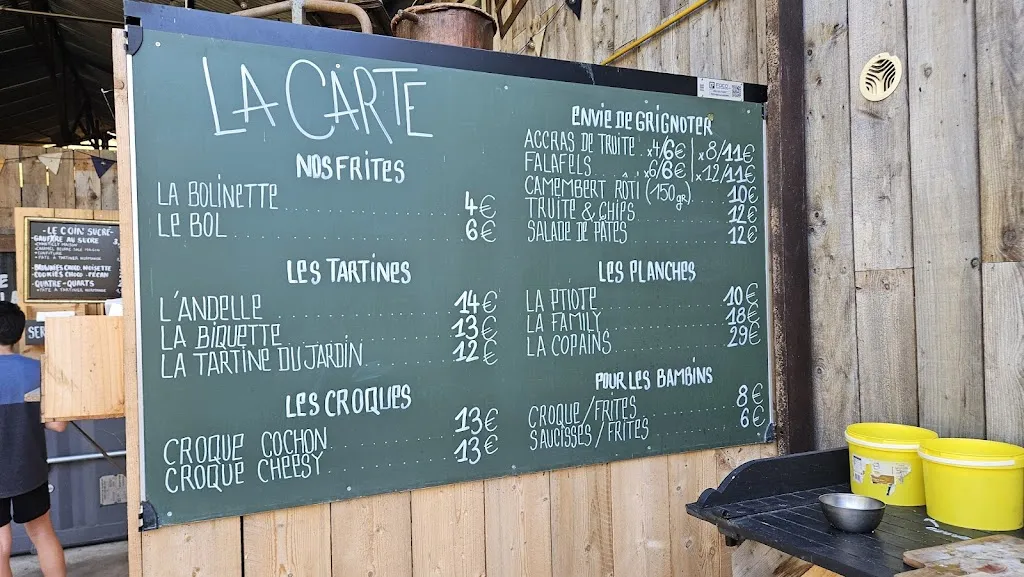 LA CARTE
NOS FRITES
LA BOLINETTE 4€
LE BOL 6€
LES TARTINES
L'ANDELLE 14€
LA BIQUETTE 13€
LA TARTINE DU JARDIN 12€
LES CROQUES
CROQUE COCHON 13€
CROQUE CHEESY 13€
ENVIE DE GRIGNOTER
ACCRAS DE TRUITE x4/6€ | x8/11€
FALAFELS x6/6€ | x12/11€
CAMEMBERT RÔTI (150gr) 10€
TRUITE & CHIPS 12€
SALADE DE PÂTES 12€
LES PLANCHES
LA PTIOTE 10€
LA FAMILY 18€
LA COPAINS 29€
POUR LES BAMBINS
CROQUE/FRITES 8€
SAUCISSES/FRITES 6€
-LE COIN SUCRÉ-
-GAUFRE AU SUCRE
-BROWNIES CHOCO, NOISETTE
COOKIES CHOCO - PÉCAN
-QUATRE-QUARTS
SER